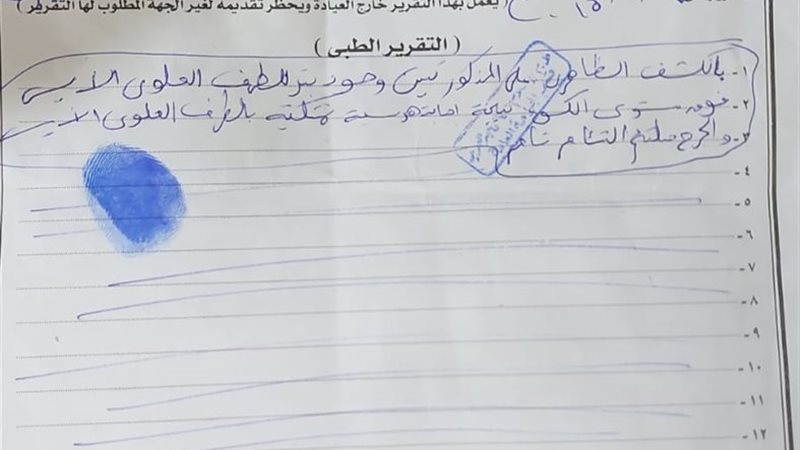 ( يعمل بهذا التقرير خارج العيادة ويحظر تقديمه لغير الجهة المطلوب لها التقرير )
( التقرير الطبى )
١ - بالكشف الظاهرى على المذكور تبين وجود بتر للطرف العلوى الأيسر
٢ - فوق مستوى الكوع نتيجة اصابة هرسية بالطرف العلوى الأيسر
٣ - والجرح ملتئم التئام تام
٤ -
٥ -
٦ -
٧ -
٨ -
٩ -
١٠ -
١١ -
١٢ -